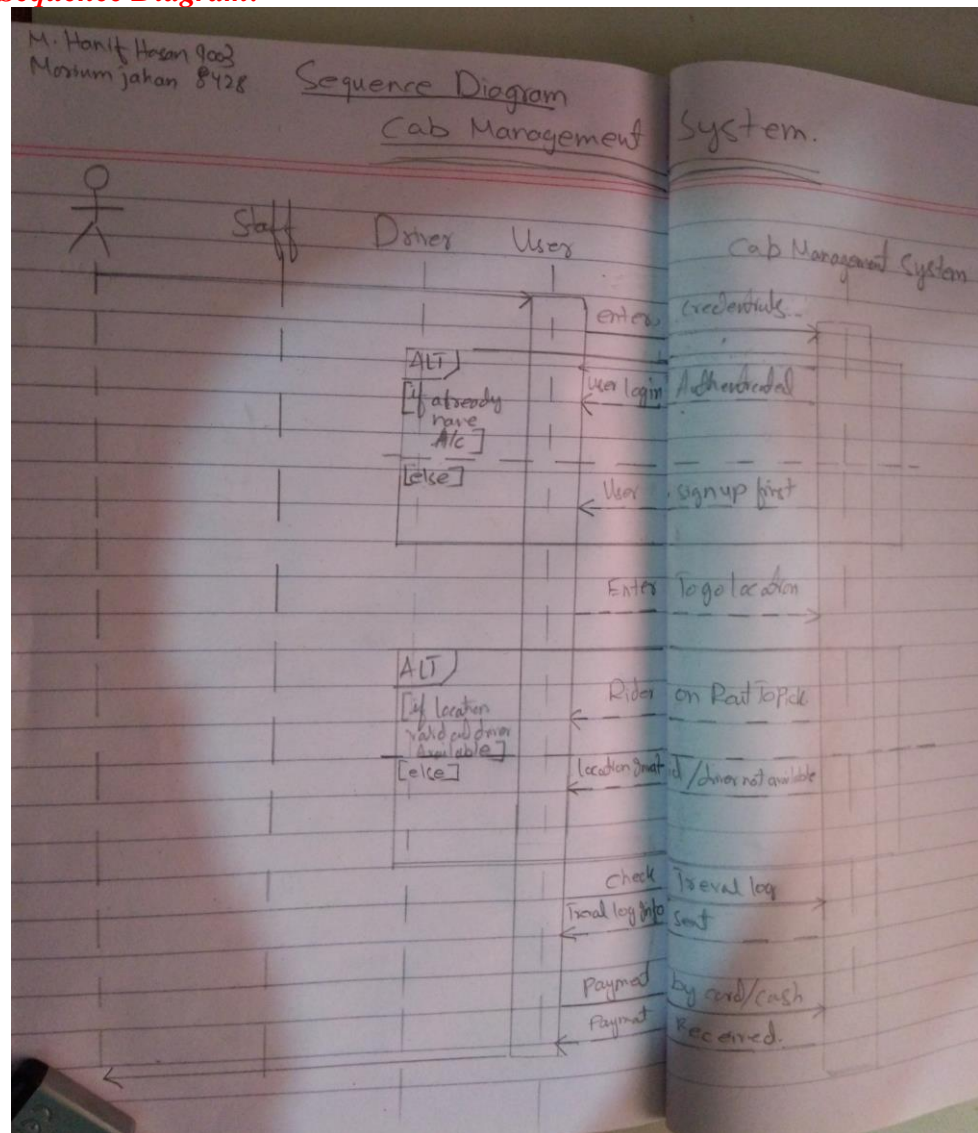 Sequence Diagram:
M. Hanif Hasan 9003
Morium jahan 8428
Sequence Diagram
Cab Management System.
Staff Driver User Cab Management System
enters credentials
ALT
User login Authenticated
[if already
have
A/c]
[else]
User signup first
Enter To go location
ALT
[if location
valid and driver
Available]
Rider on Rout To Pick
[else]
location /driver not available
Check Treval log
Treval log Info sent
Payment by card/cash
Paymat Received.